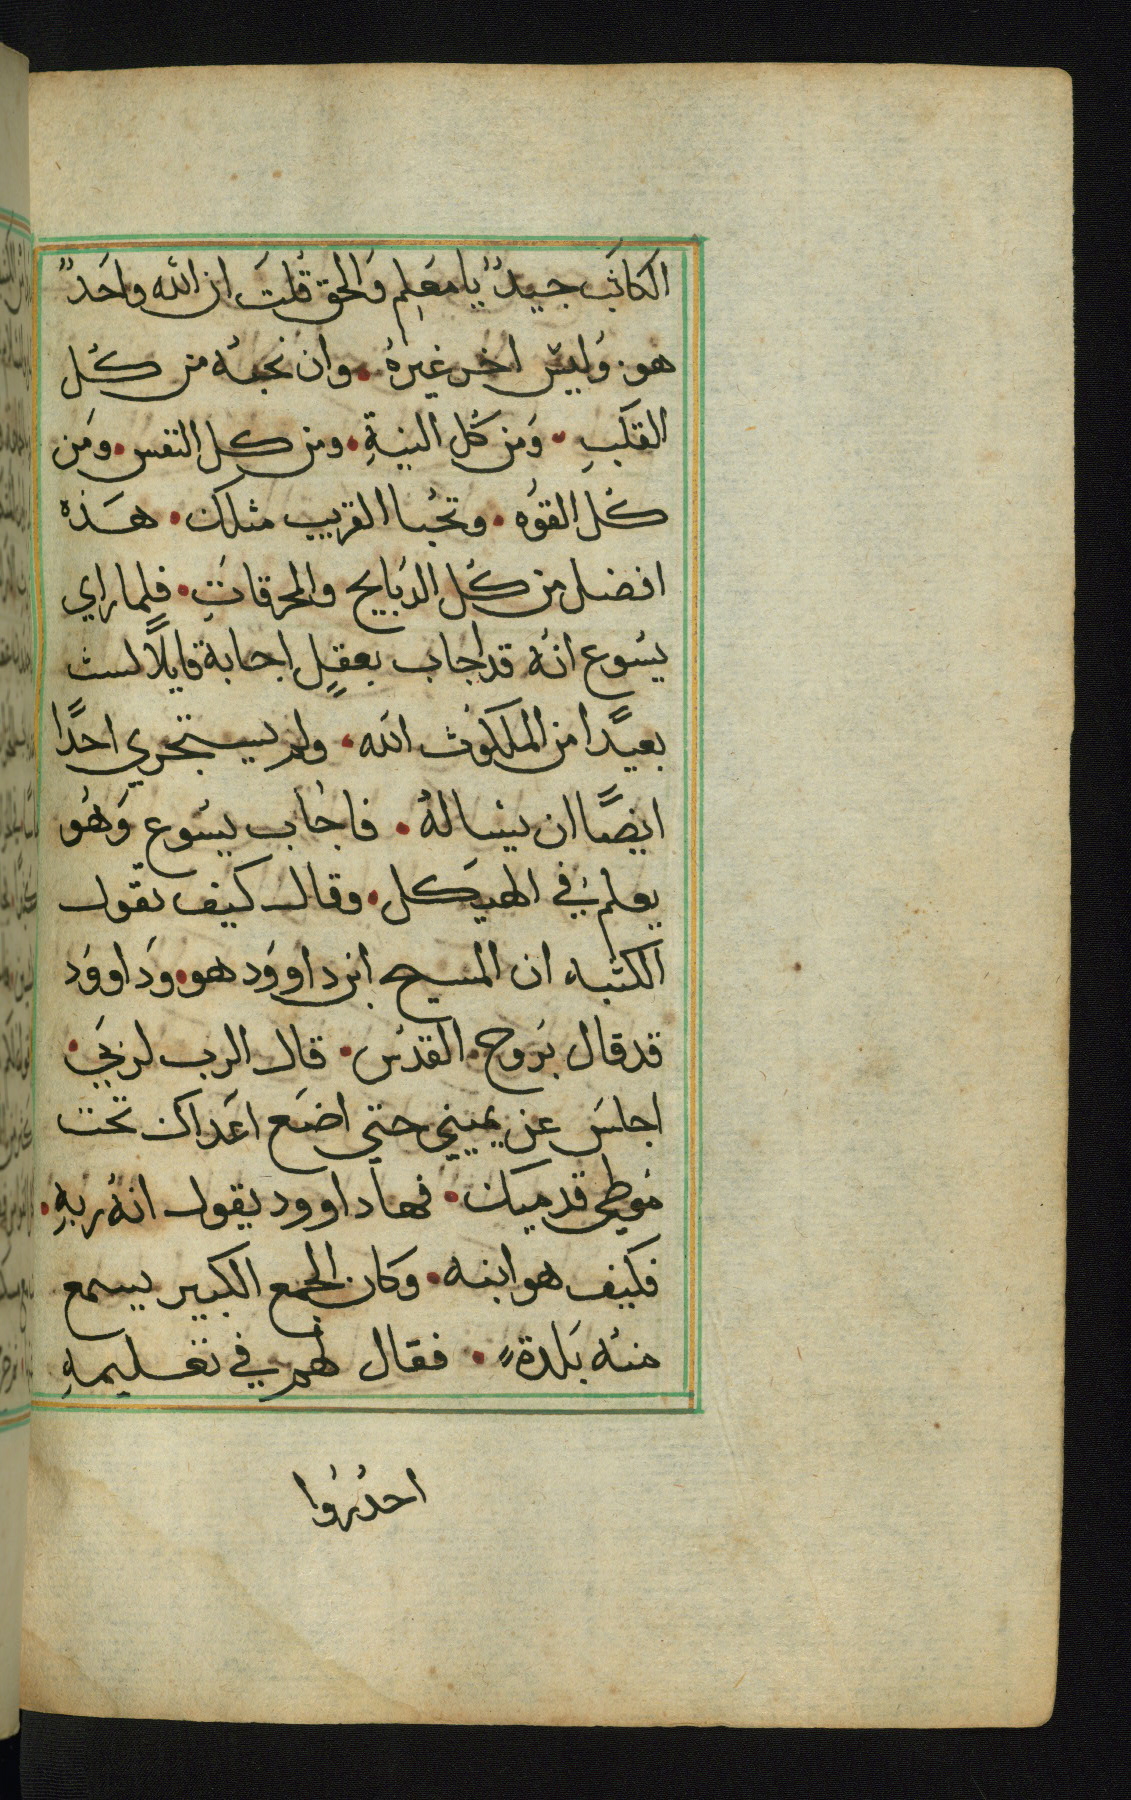 الكاتب جيدٌ يا معلم والحق قلت ان الله واحدٌ
هو. وليس اخر غيره. وان نحبه من كل
القلب. ومن كل النية. ومن كل النفس. ومن
كل القوه. وتحب القريب مثلك. هذه
افضل من كل الدبايح والمحرقات. فلما راي
يسوع انه قد اجاب بعقل اجابة قايلاً لست
بعيدًا من الملكوت الله. ولم يستجري احدًا
ايضًا ان يساله. فاجاب يسوع وهو
يعلم في الهيكل. وقال كيف تقول
الكتبه ان المسيح ابن داوود هو. وداوود
قد قال بروح القدس. قال الرب لربي.
اجلس عن يميني حتي اضع اعداك تحت
موطي قدميك. فهاداوود يقول انه ربه.
فكيف هو ابنه. وكان الجمع الكبير يسمع
منه بلدةٍ. فقال لهم في تعليمه
احدروا